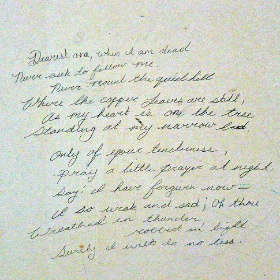 Dearest one, when I am dead
Never seek to follow me.
Never mount the quiet hill
Where the copper leaves are still,
As my heart is on the tree
Standing at my narrow bed
Only of your tenderness,
Pray a little prayer at night
Say: I have forgiven now -
I so weak and sad; Oh thou
Wreathed in thunder
robed in light
Surely I will do no less.